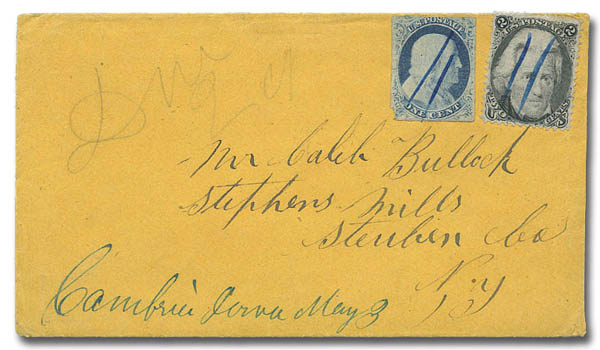 U.S. POSTAGE
ONE CENT
U.S. POSTAGE
2 2
TWO CENTS
Mr Caleb Bullock
Stephens Mills
Steuben Co
N.Y
Cambria Iowa May 3